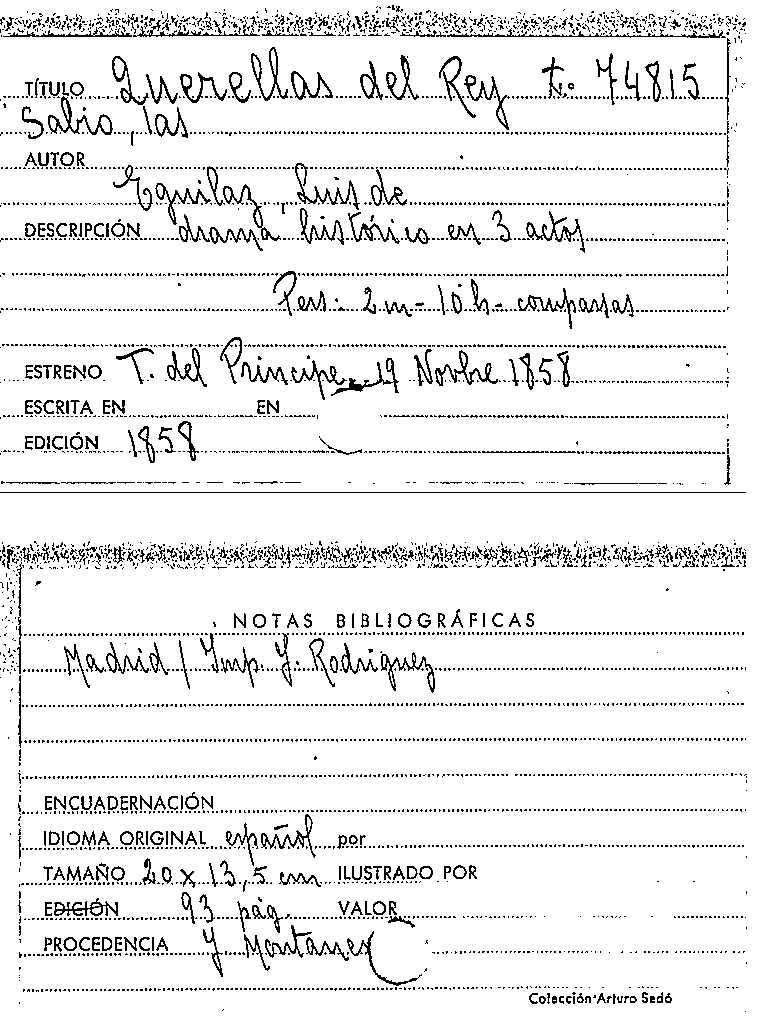 TÍTULO Querellas del Rey t. 74815
Sabio, las
AUTOR
Eguilaz, Luis de
DESCRIPCIÓN drama histórico en 3 actos
Pers: 2 m - 10 h - comparsas
ESTRENO T. del Principe - 19 Novbre 1858
ESCRITA EN EN
EDICIÓN 1858
NOTAS BIBLIOGRÁFICAS
Madrid / Imp. J. Rodriguez
ENCUADERNACIÓN
IDIOMA ORIGINAL español por
TAMAÑO 20 x 13,5 cm ILUSTRADO POR
EDICIÓN 93 pág. VALOR
PROCEDENCIA J Montaner
Colección Arturo Sedó